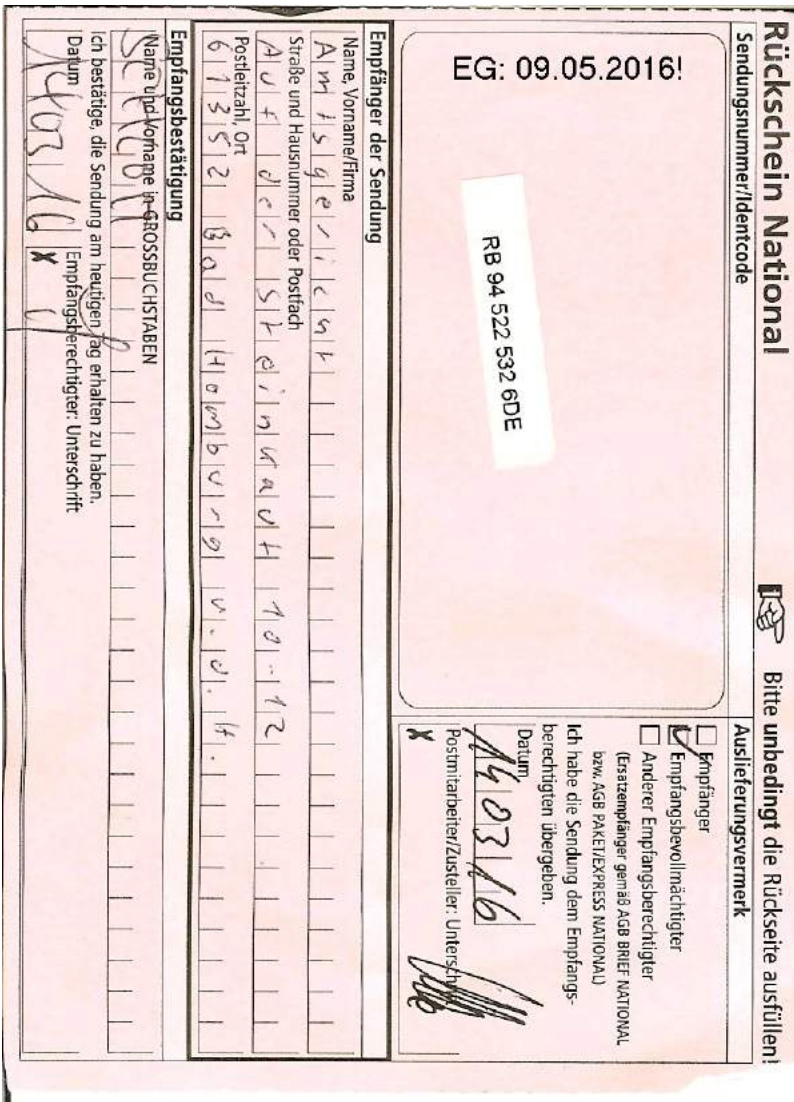 Rückschein National
Bitte unbedingt die Rückseite ausfüllen!
Sendungsnummer/Identcode
EG: 09.05.2016!
RB 94 522 532 6DE
Auslieferungsvermerk
Empfänger
Empfangsbevollmächtigter
Anderer Empfangsberechtigter
(Ersatzempfänger gemäß AGB BRIEF NATIONAL
bzw. AGB PAKET/EXPRESS NATIONAL)
Ich habe die Sendung dem Empfangs-
berechtigten übergeben.
Datum
14 03 16
Postmitarbeiter/Zusteller: Untersch
X
Empfänger der Sendung
Name, Vorname/Firma
Amtsgericht
Straße und Hausnummer oder Postfach
Auf der Steinkaut 10-12
Postleitzahl, Ort
61352 Bad Homburg v.d.H.
Empfangsbestätigung
Name und Vorname in GROSSBUCHSTABEN
Ich bestätige, die Sendung am heutigen Tag erhalten zu haben.
Datum
Empfangsberechtigter: Unterschrift
14 03 16
X